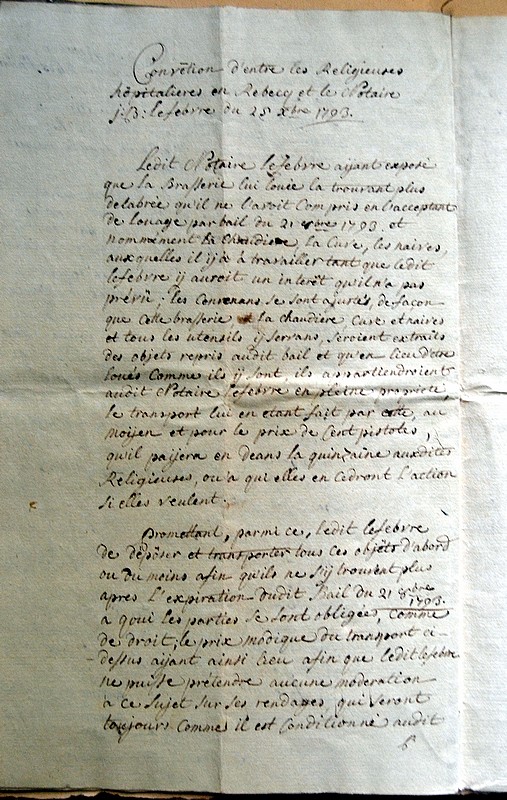 Convẽtion d'entre les Religieuses
hôpitalieres en Rebecq et le Notaire
j:B: lefebvre du 25 xbre 1793.
Ledit Notaire lefebvre aijant exposé
que la Brasserie lui louée la trouvant plus
delabrée qu'il ne l'avoit Compris en l'acceptant
de louage par bail du 21 8bre 1793 et
nommement la Chaudiere, la Cuve, les naives,
auxquelles il ij a à travailler tant que ledit
lefebvre ij auroit un interêt qu'il n'a pas
prévû; les Convenans se sont ajustés, de façon
que cette brasserie, et la chaudière Cuve et naives
et tous les utensils ij servans, seroient extraits
des objets repris audit bail et qu'en lieu d'etre
loués Comme ils ij sont, ils appartiendroient
audit Notaire lefebvre en pleine propriété,
le transport lui en etant fait par cette, au
moijen et pour le prix de Cent pistoles,
qu'il paijera en deans la quinzaine auxdites
Religieuses, ou a qui elles en Cedront l'action
si elles veulent.
promettant, parmi ce, ledit lefebvre
de dépôser et transporter tous ces objets d'abord
ou du moins afin qu'ils ne s'ij trouvent plus
apres l'expiration dudit Bail du 21 8bre
1793.
a quoi les parties se sont obligées, Comme
de droit; le prix modique du transport ci-
dessus aijant ainsi lieu afin que ledit lefebvre
ne puisse pretendre aucune moderation
a ce sujet sur ses rendages, qui seront
toujours Comme il est Conditionné audit